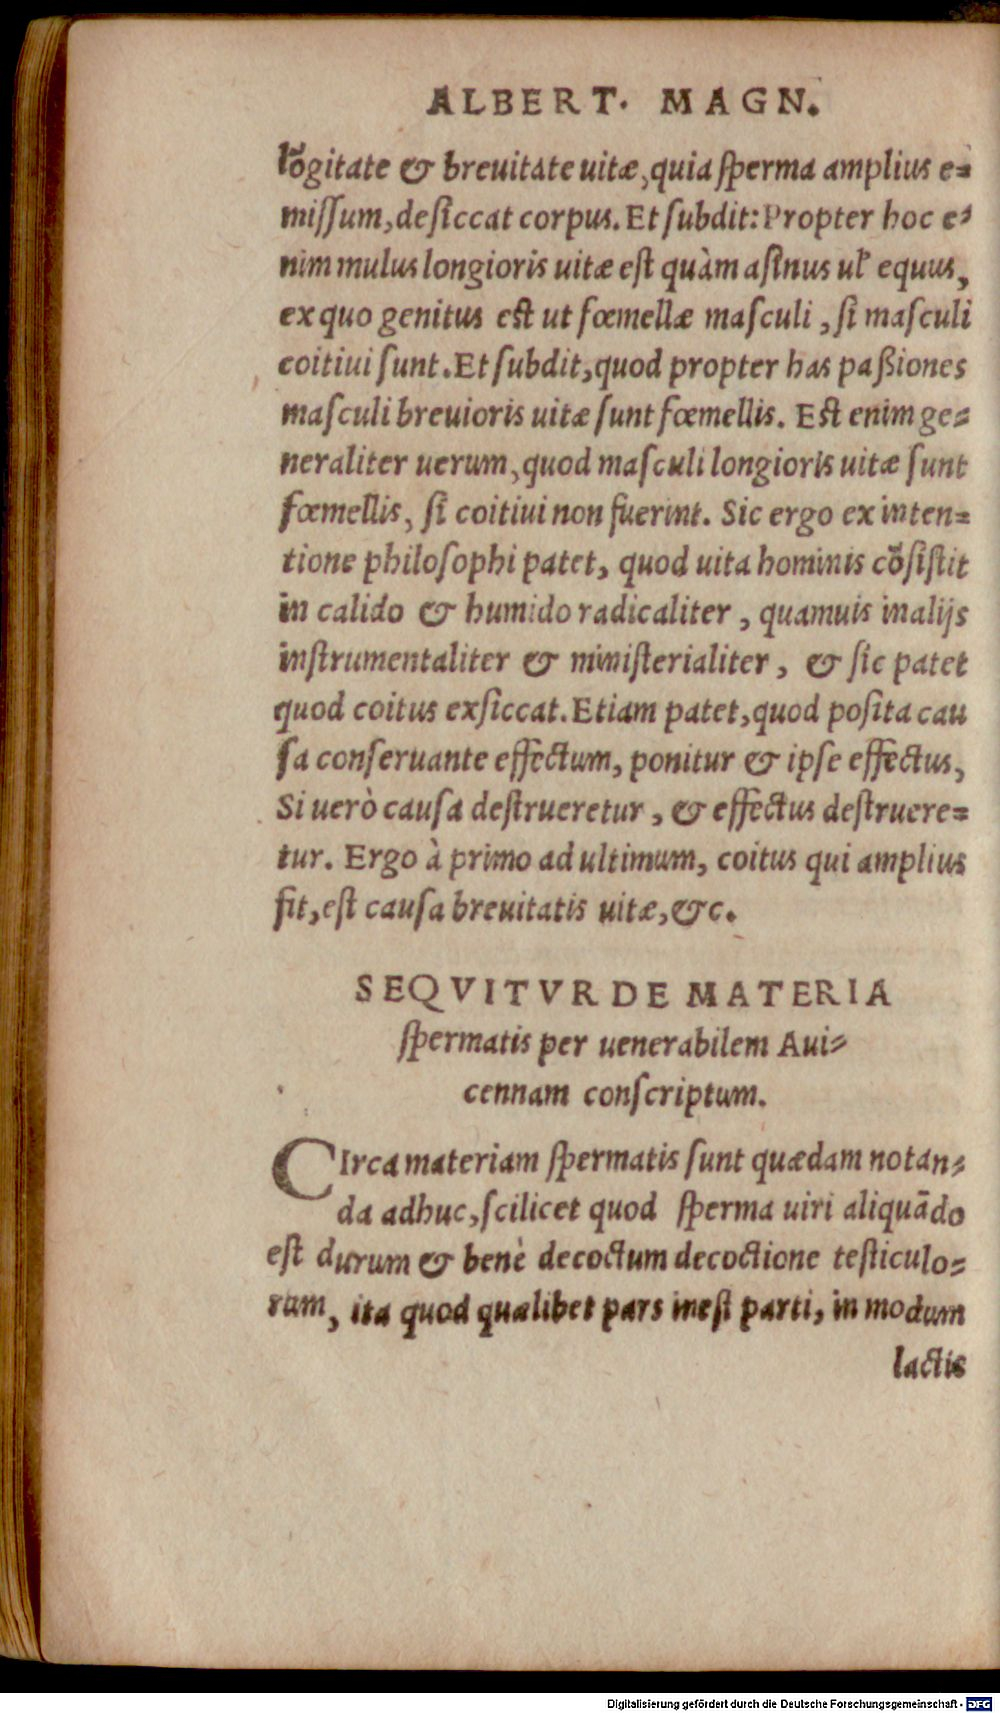 ALBERT. MAGN.
lõgitate & breuitate uitæ, quia sperma amplius e-
missum, desiccat corpus. Et subdit: Propter hoc e-
nim mulus longioris uitæ est quàm asinus ul' equus,
ex quo genitus est ut fœmellæ masculi, si masculi
coitiui sunt. Et subdit, quod propter has paßiones
masculi breuioris uitæ sunt fœmellis. Est enim ge-
neraliter uerum, quod masculi longioris uitæ sunt
fœmellis, si coitiui non fuerint. Sic ergo ex inten-
tione philosophi patet, quod uita hominis cõsistit
in calido & humido radicaliter, quamuis in alijs
instrumentaliter & ministerialiter, & sic patet
quod coitus exsiccat. Etiam patet, quod posita cau
sa conseruante effectum, ponitur & ipse effectus,
Si uerò causa destrueretur, & effectus destruere-
tur. Ergo à primo ad ultimum, coitus qui amplius
fit, est causa breuitatis uitæ, &c.
SEQVITVR DE MATERIA
spermatis per uenerabilem Aui-
cennam conscriptum.
CIrca materiam spermatis sunt quædam notan-
da adhuc, scilicet quod sperma uiri aliquãdo
est durum & benè decoctum decoctione testiculo-
rum, ita quod qualibet pars inest parti, in modum
lactis
Digitalisierung gefördert durch die Deutsche Forschungsgemeinschaft - DFG